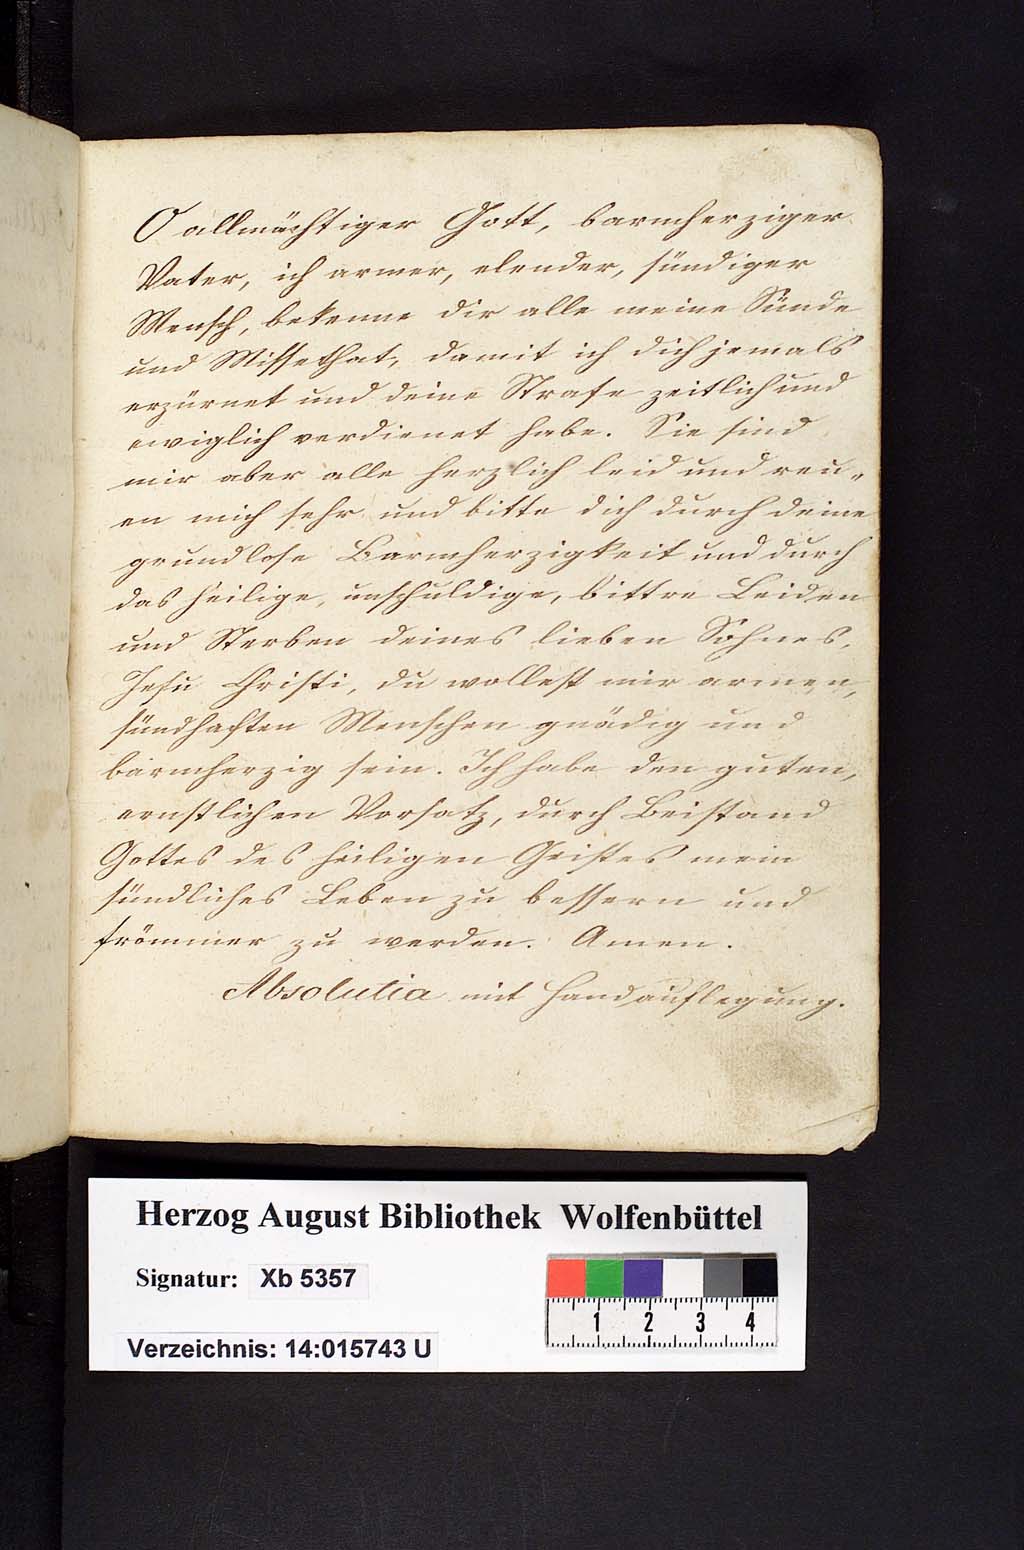 O allmächtiger Gott, barmherziger
Vater, ich armer, elender, sündiger
Mensch, bekenne dir alle meine Sünde
und Missethat, damit ich dich jemals
erzürnet und deine Strafe zeitlich und
ewiglich verdienet habe. Sie sind
mir aber alle herzlich leid und reu-
en mich sehr und bitte dich durch deine
grundlose Barmherzigkeit und durch
das heilige, unschuldige, bittre Leiden
und Sterben deines lieben Sohnes,
Jesu Christi, du wollest mir armen,
sündhaften Menschen gnädig und
barmherzig sein. Ich habe den guten,
ernstlichen Vorsatz, durch Beistand
Gottes des heiligen Geistes mein
sündliches Leben zu bessern und
frömmer zu werden. Amen.
Absolutio mit Handauflegung.
Herzog August Bibliothek Wolfenbüttel
Signatur: Xb 5357
1 2 3 4
Verzeichnis: 14:015743 U